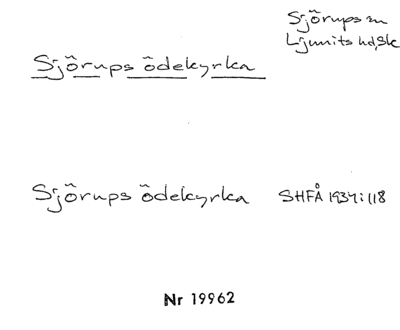 Sjörups sn
Ljunits hd, Sk
Sjörups ödekyrka
Sjörups ödekyrka SHFÅ 1934:118
Nr 19962